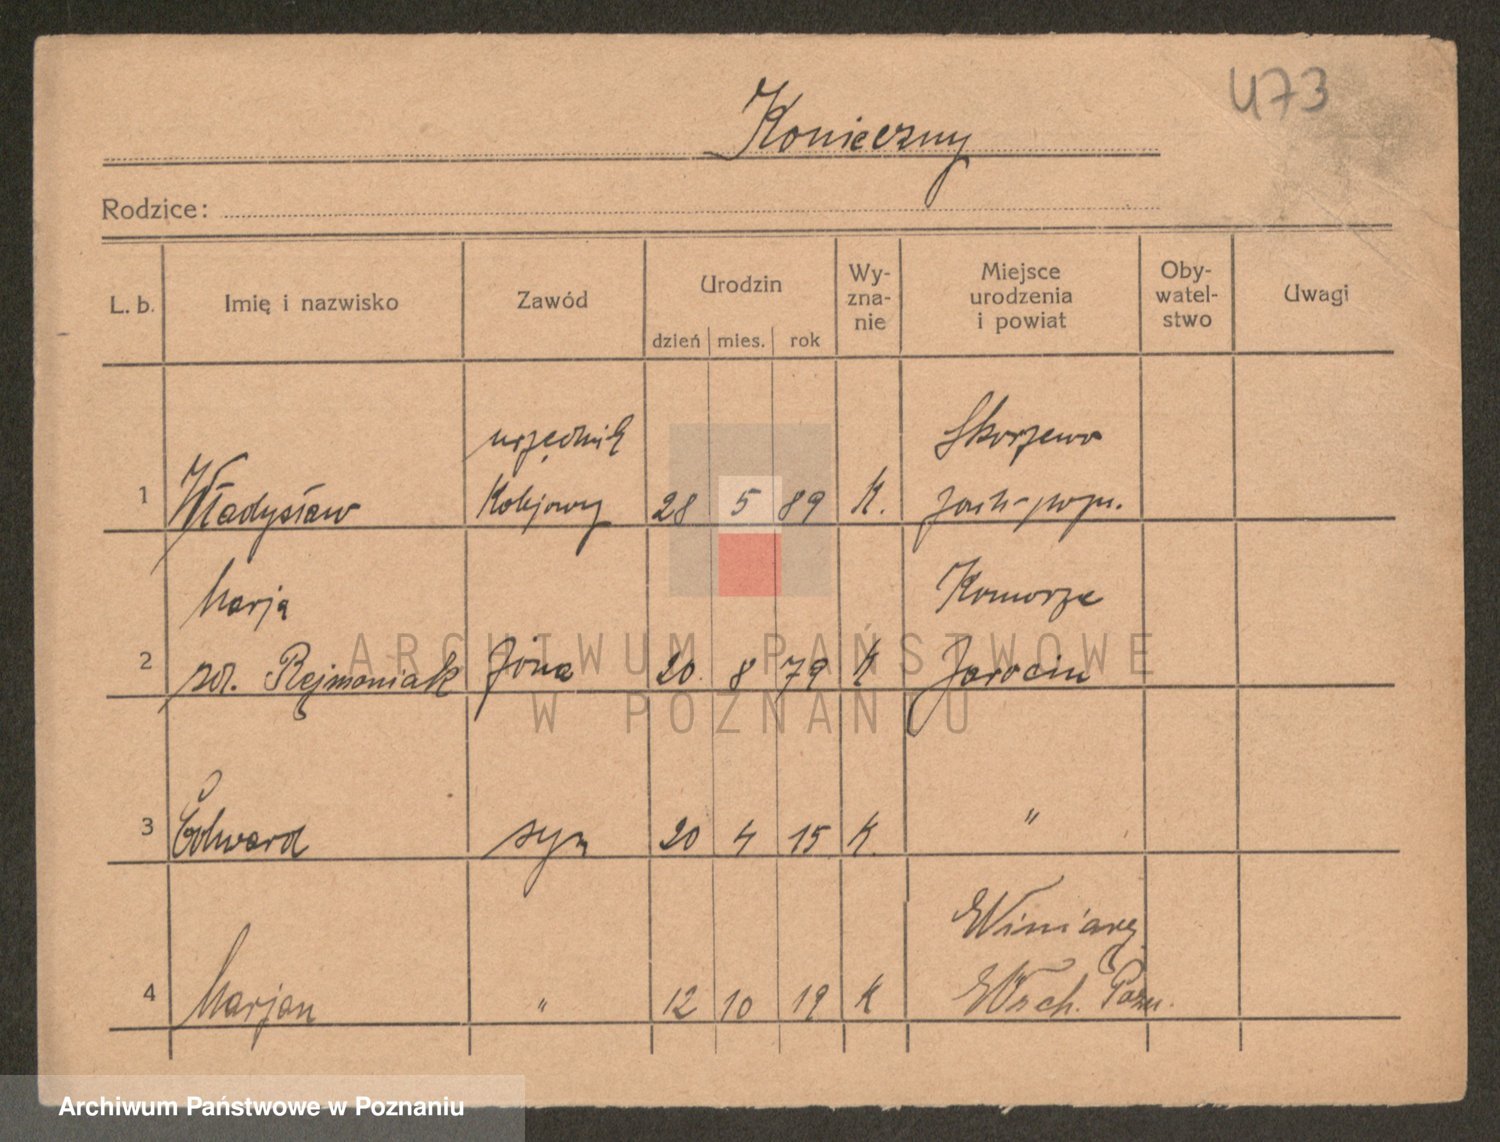 473
Konieczny
Rodzice:
L. b. Imię i nazwisko Zawód Urodzin dzień mies. rok Wy-zna-nie Miejsce urodzenia i powiat Oby-watel-stwo Uwagi
urzędnik Skorzewo
1 Władysław Kolejowy 28 5 89 K. zach-pozn.
Marja Komorze
2 zd. Rejmaniak żona 20. 8 79 K Jarocin
3 Edward syn 20 4 15 K. "
Winiary
4 Marjan " 12 10 19 K Wsch. Pozn.
ARCHIWUM PAŃSTWOWE
W POZNANIU
Archiwum Państwowe w Poznaniu